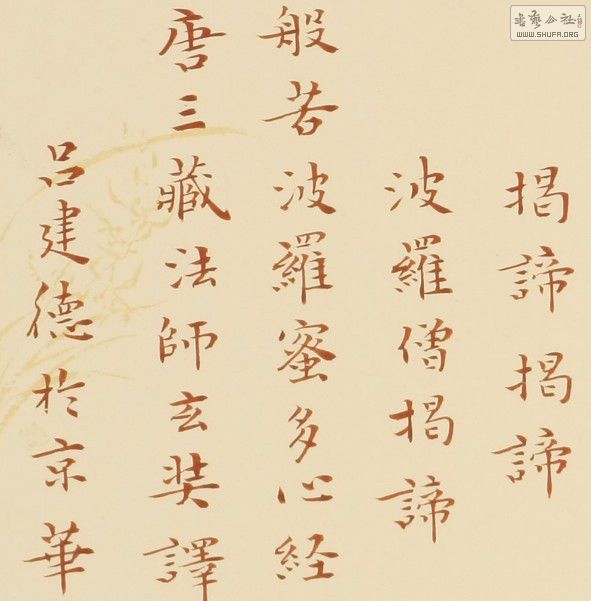 揭諦揭諦
波羅僧揭諦
般若波羅蜜多心経
唐三藏法師玄奘譯
吕建德於京華
書藝公社
WWW.SHUFA.ORG